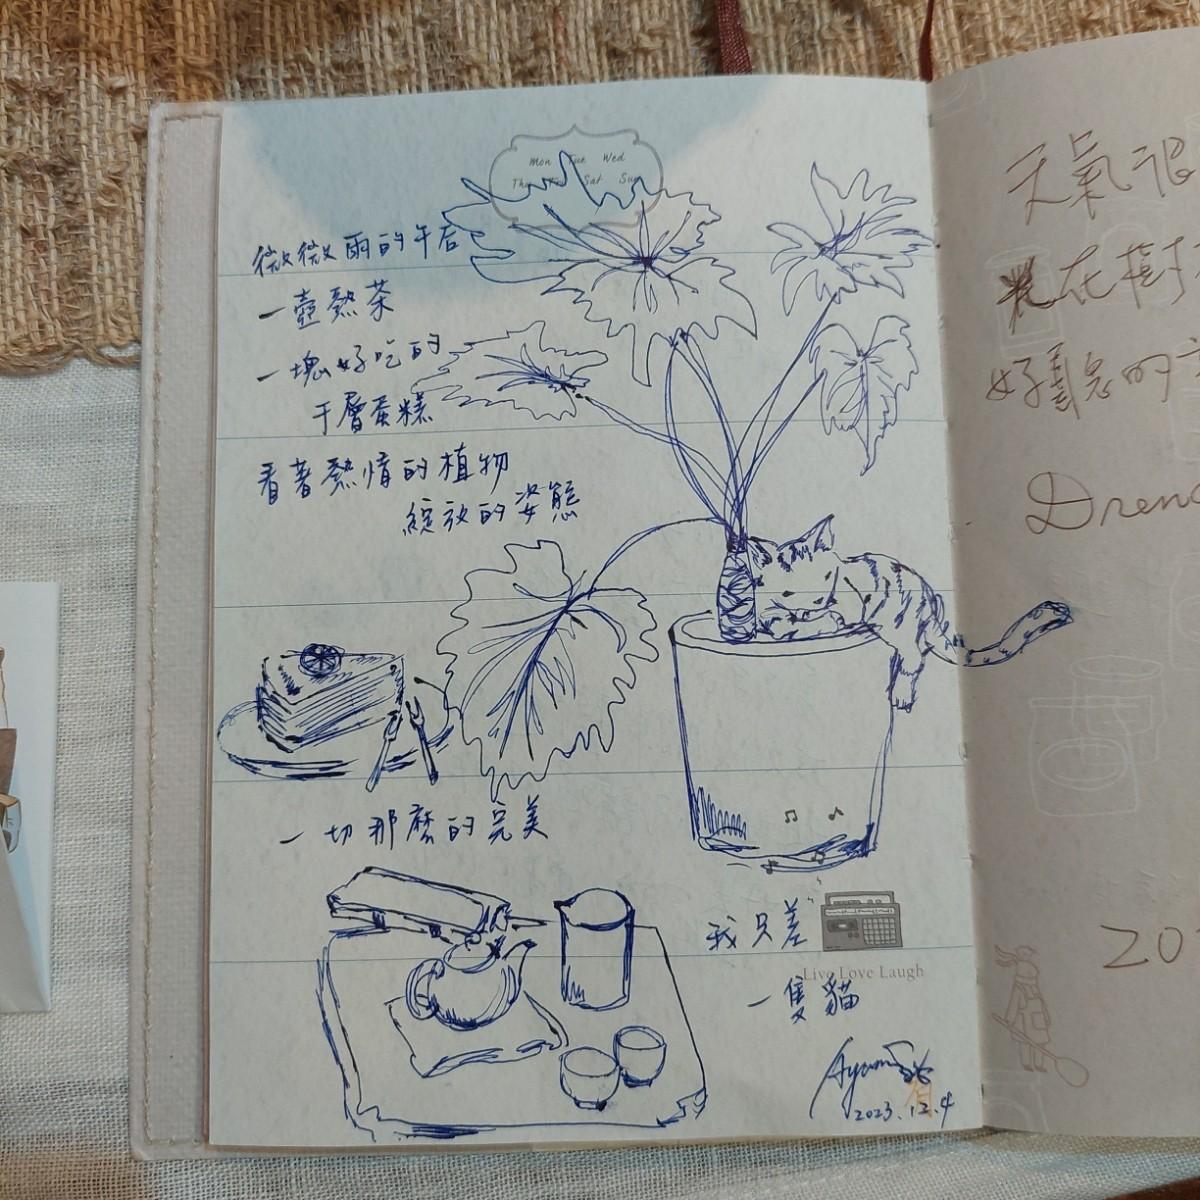 Mon Tue Wed
Sat Sun
微微雨的午后
一壺熱茶
一塊好吃的
千層蛋糕
看著熱情的植物
綻放的姿態
一切那麼的完美
我只差
Live Love Laugh
一隻貓
Ayumi
2023.12.4
天氣很
在樹
好愜意的
Dren
20